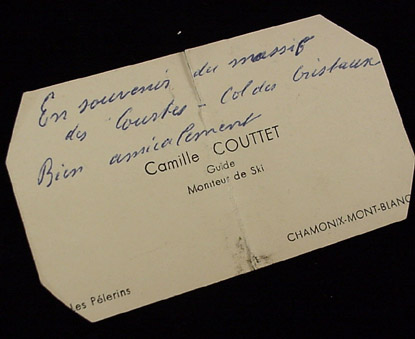 En souvenir du massif
des Courtes - Col des Cristaux
Bien amicalement
Camille COUTTET
Guide
Moniteur de Ski
CHAMONIX-MONT-BLANC
les Pélerins